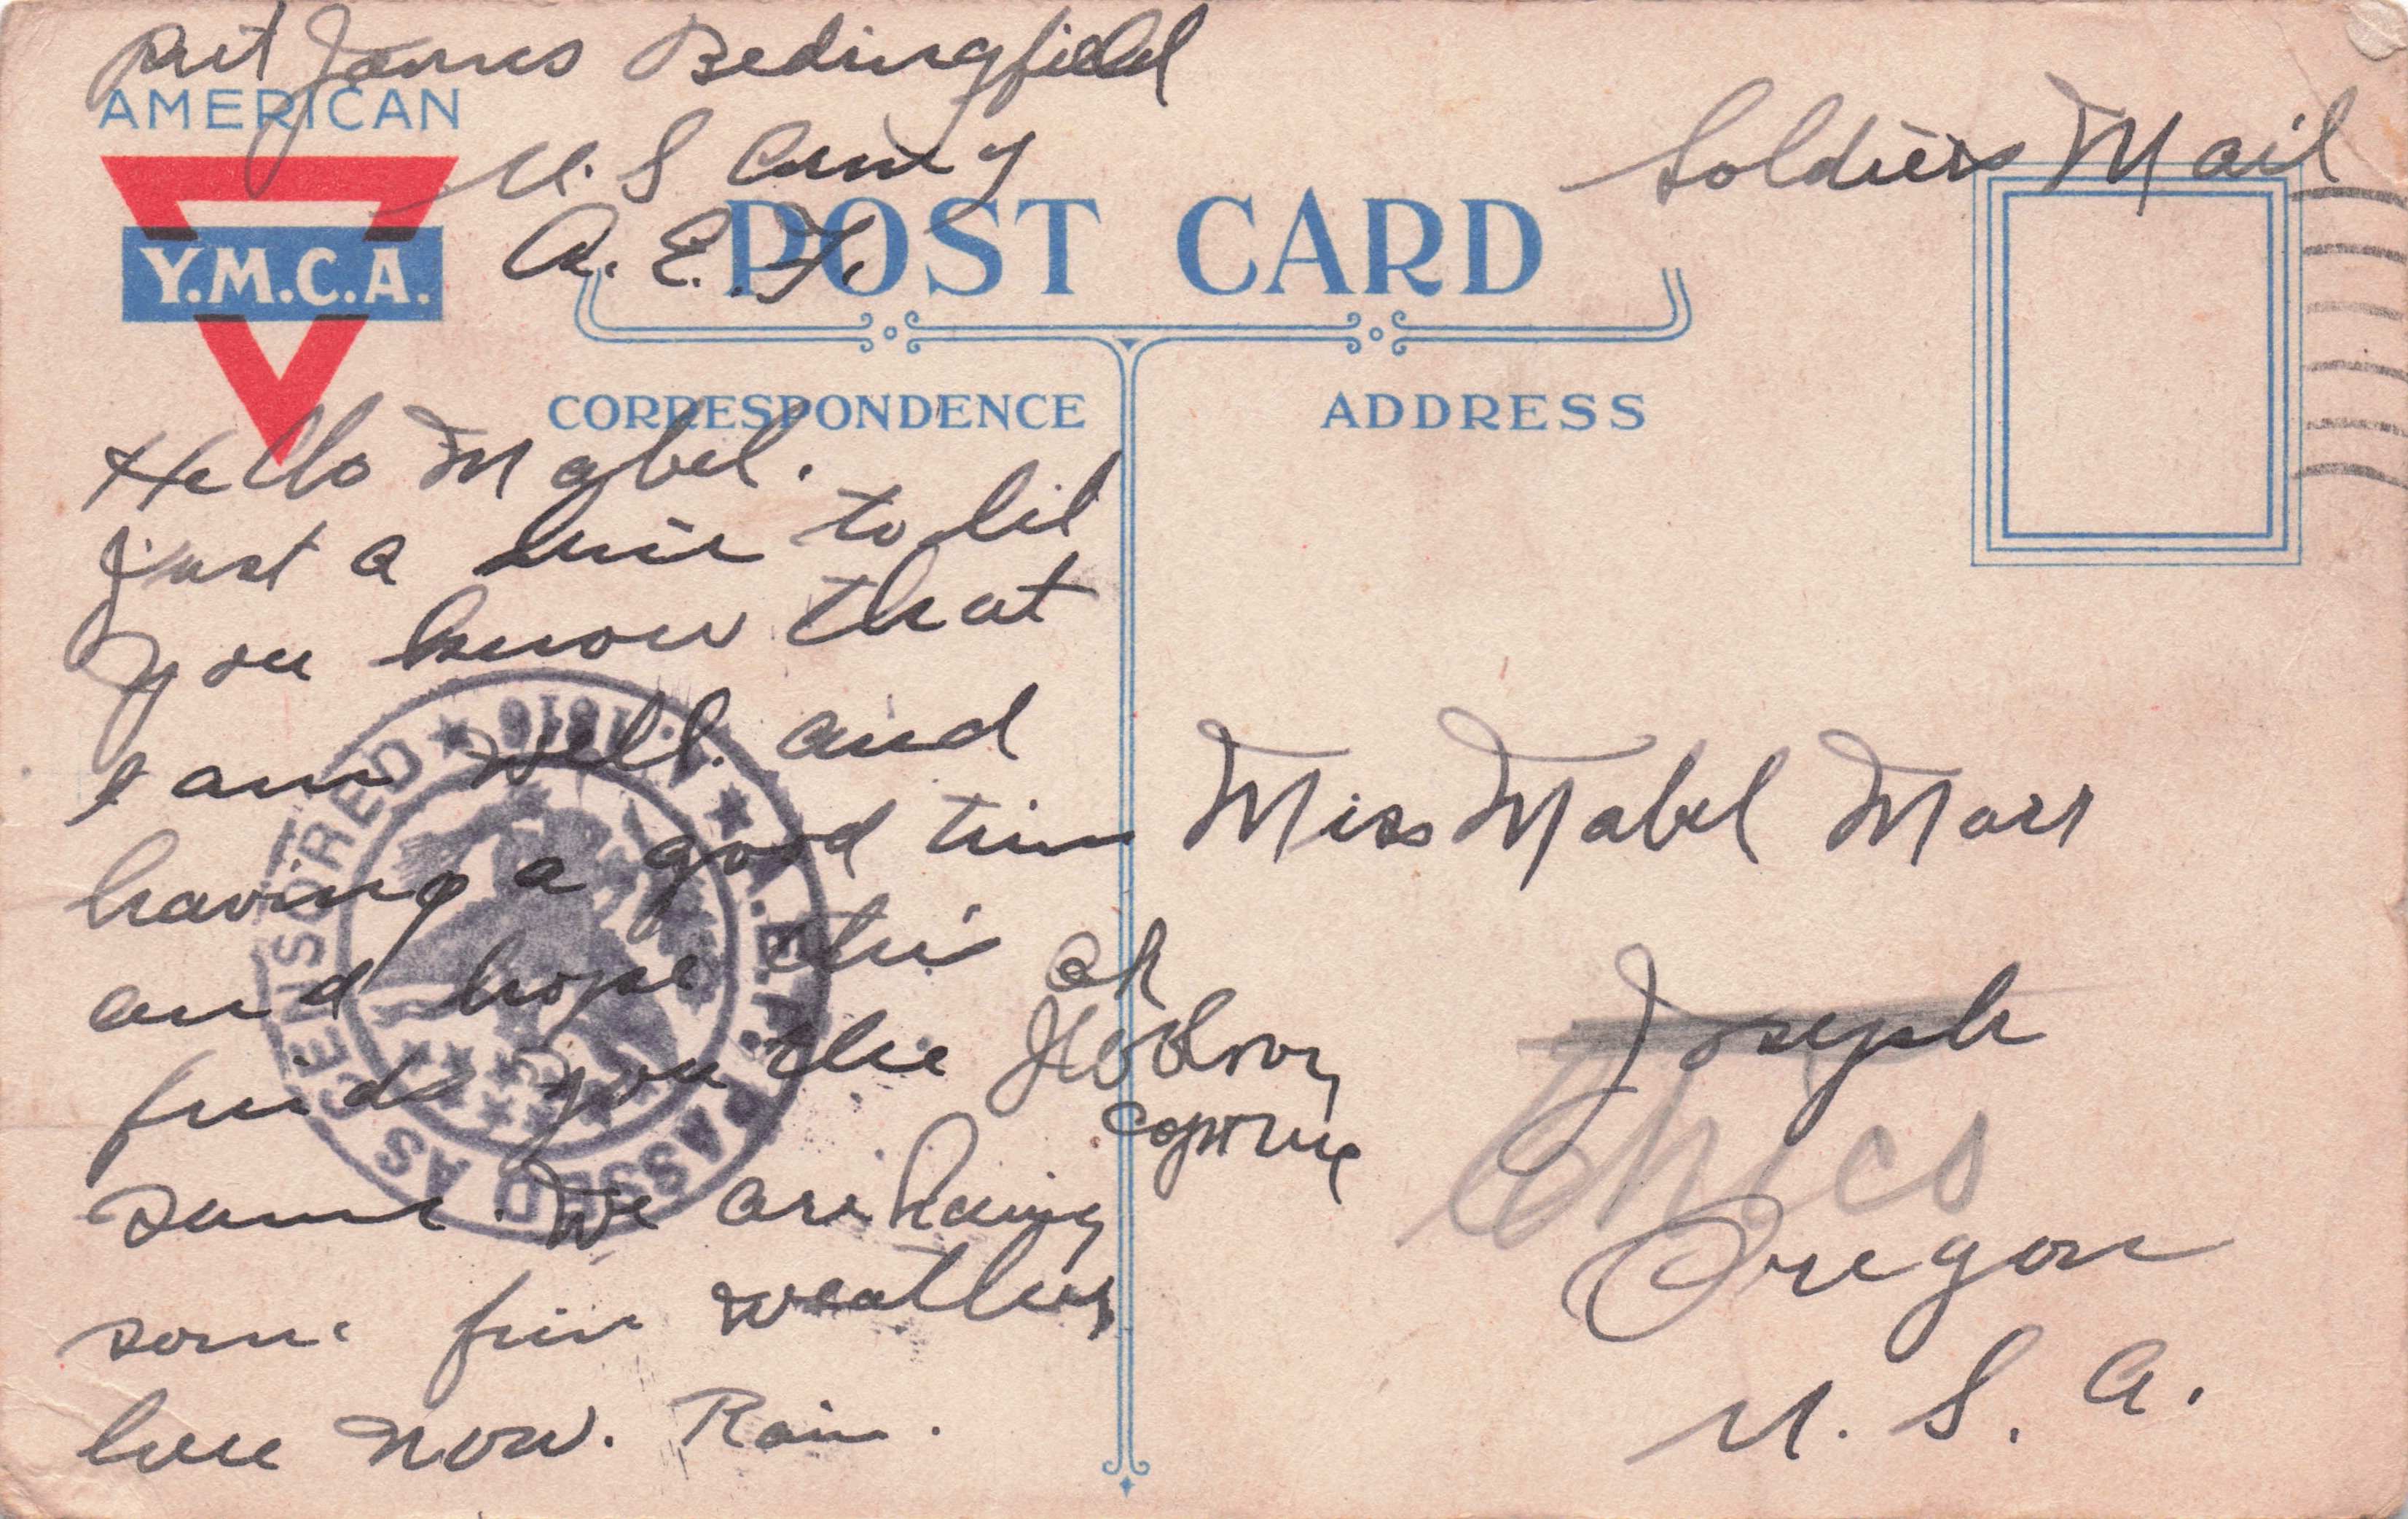 Pvt James Bedingfield
AMERICAN
U. S Army
Soldiers Mail
Y.M.C.A.
A. E. F.
POST CARD
CORRESPONDENCE
ADDRESS
Hello Mabel.
Just a line to let
you know that
I am well. and
having a good time
and hope this
finds you the
same. We are having
some fine weather
here now. Rain.
OK
Miss Mabel Marr
Joseph
Oregon
U. S. A.
PASSED AS CENSORED ★ A.E.F.